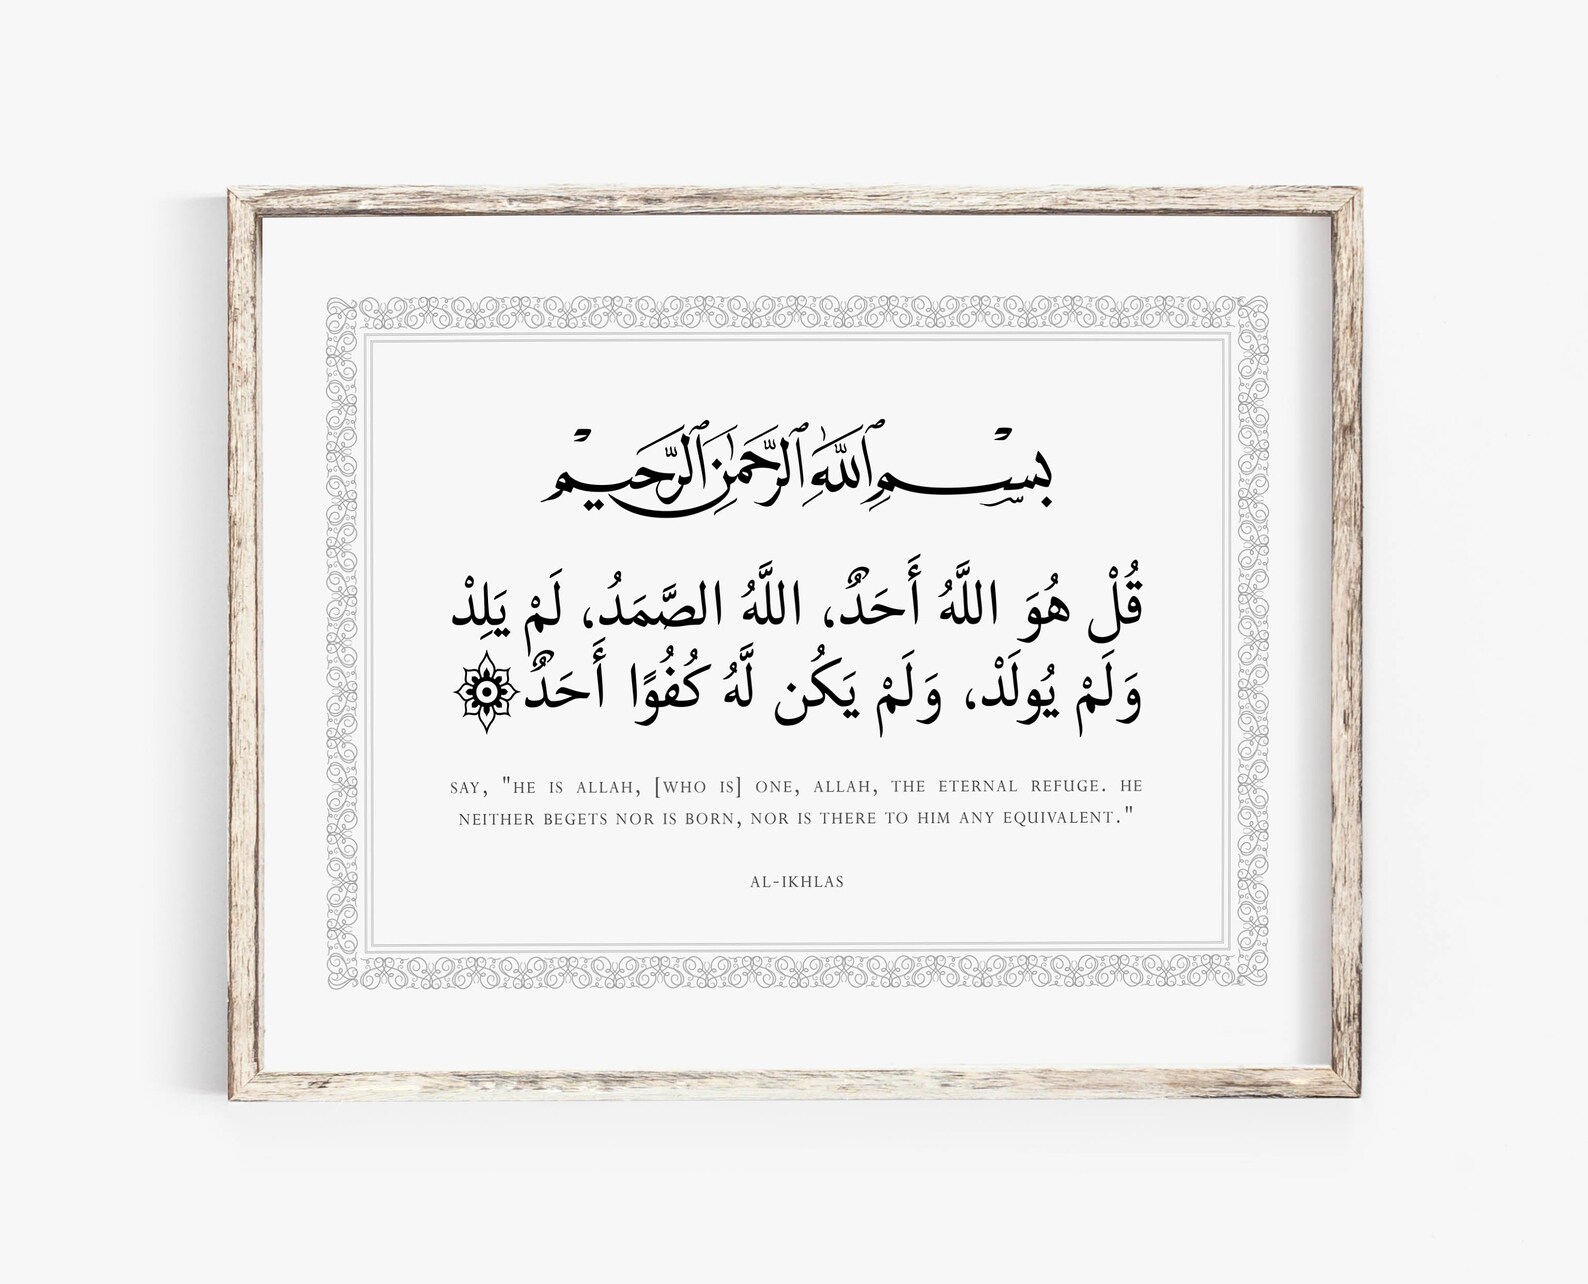 بِسْمِ ٱللَّهِ ٱلرَّحْمَٰنِ ٱلرَّحِيمِ
قُلْ هُوَ اللَّهُ أَحَدٌ، اللَّهُ الصَّمَدُ، لَمْ يَلِدْ
وَلَمْ يُولَدْ، وَلَمْ يَكُن لَّهُ كُفُوًا أَحَدٌ
SAY, "HE IS ALLAH, [WHO IS] ONE, ALLAH, THE ETERNAL REFUGE. HE
NEITHER BEGETS NOR IS BORN, NOR IS THERE TO HIM ANY EQUIVALENT."
AL-IKHLAS